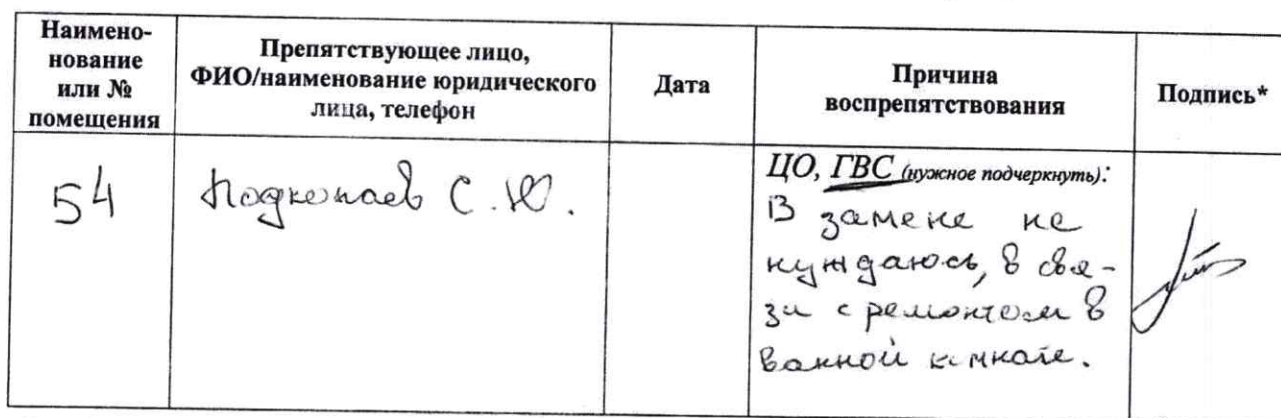 Наимено-
нование
или №
помещения
Препятствующее лицо,
ФИО/наименование юридического
лица, телефон
Дата
Причина
воспрепятствования
Подпись*
54
Подкопаев С.Ю.
ЦО, ГВС (нужное подчеркнуть):
В замене не
нуждаюсь, в свя-
зи с ремонтом в
ванной комнате.